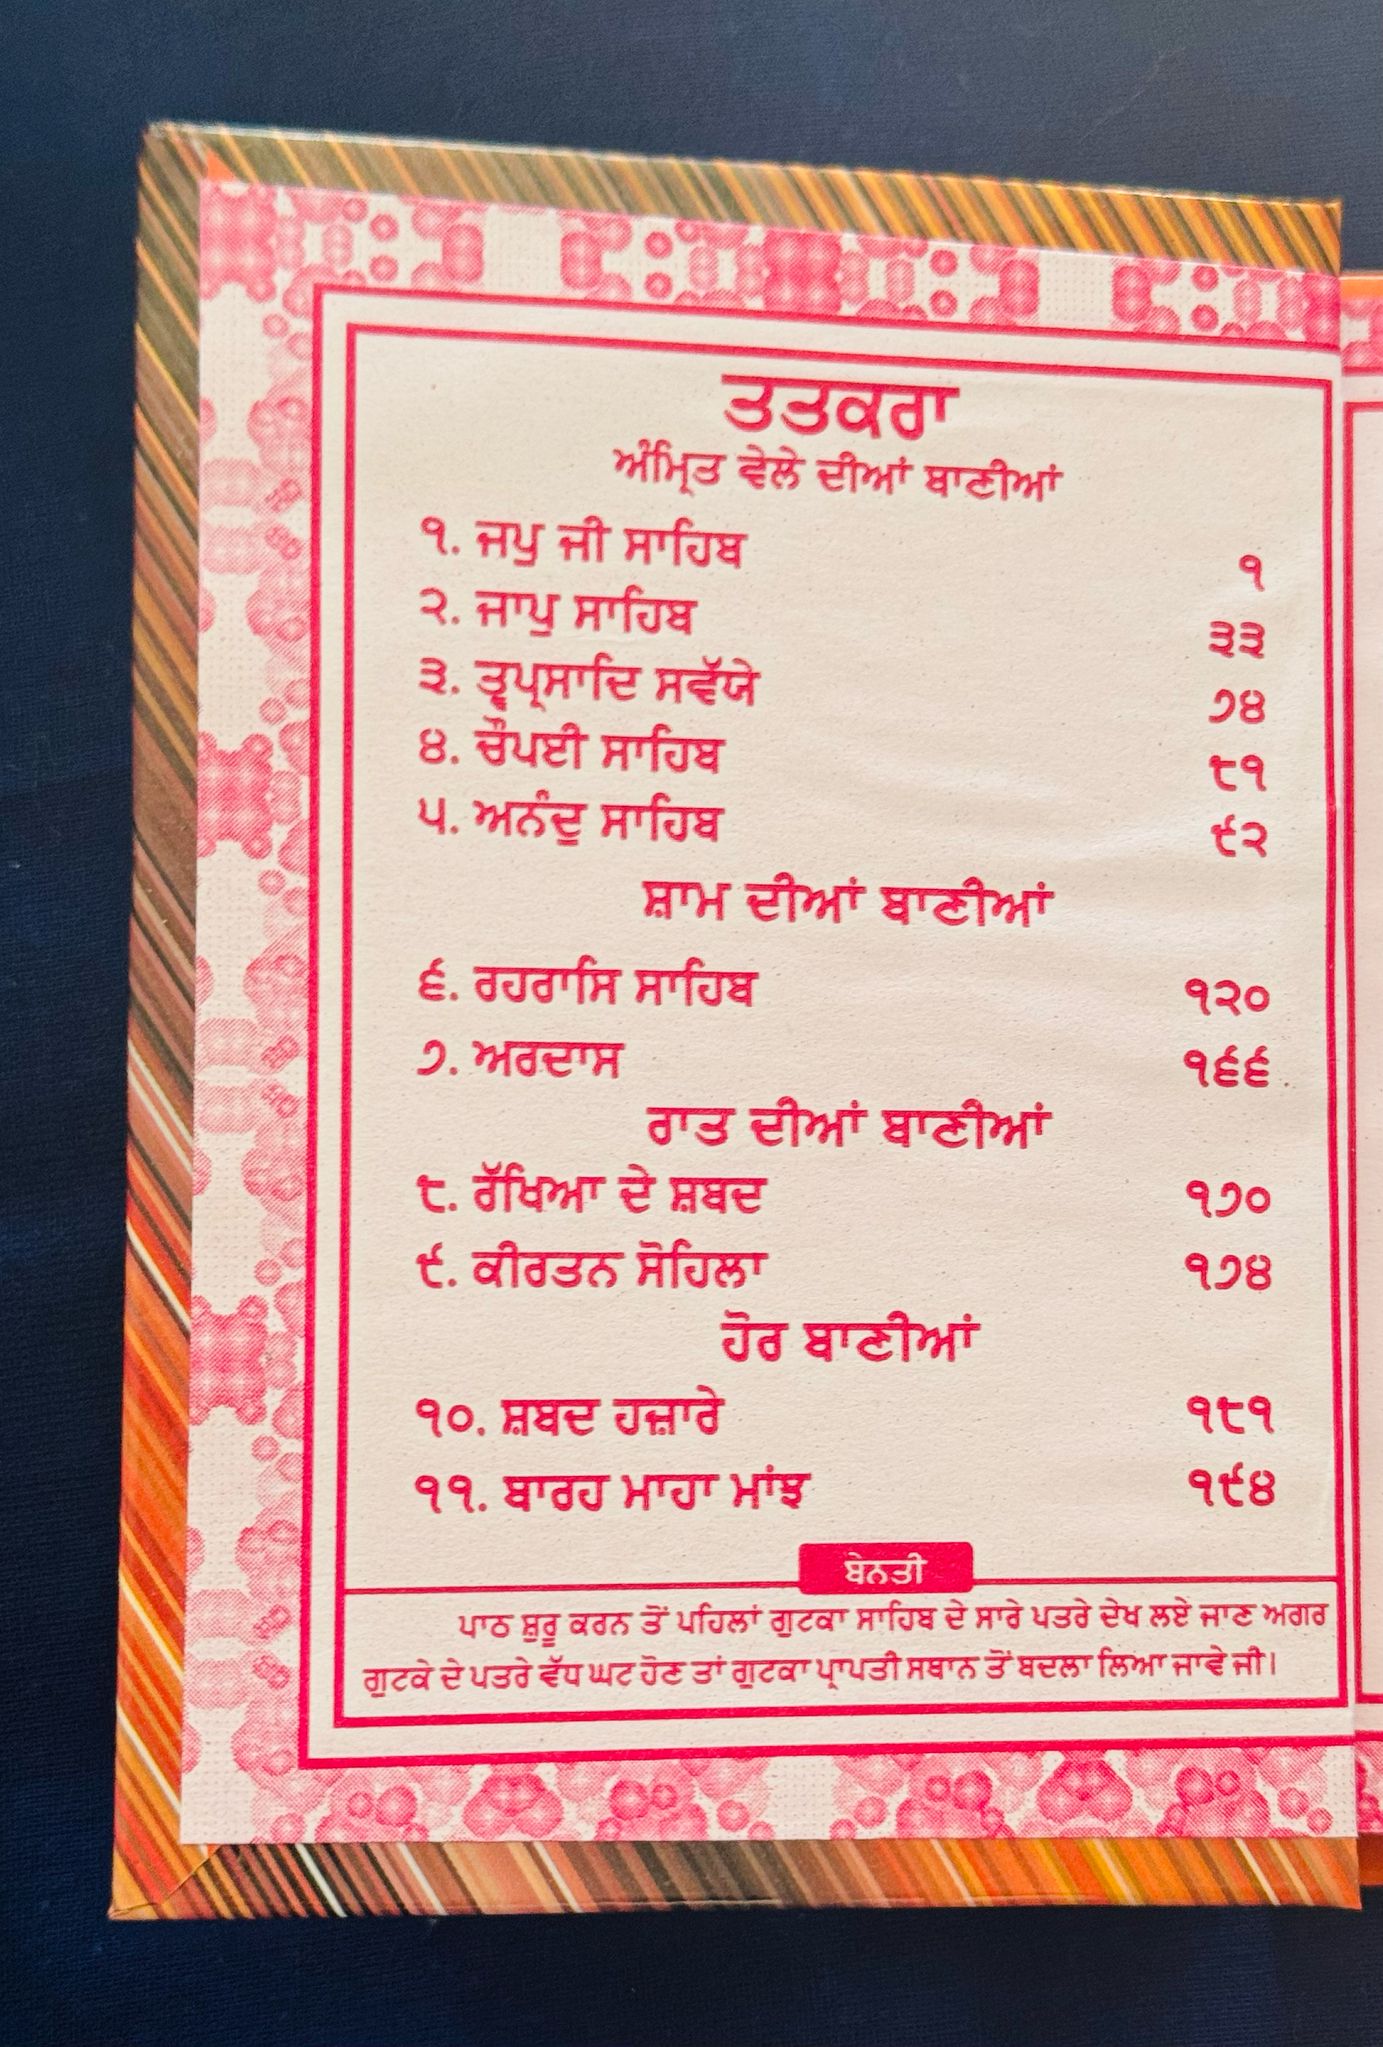 ਤਤਕਰਾ
ਅੰਮ੍ਰਿਤ ਵੇਲੇ ਦੀਆਂ ਬਾਣੀਆਂ
੧. ਜਪੁ ਜੀ ਸਾਹਿਬ ੧
੨. ਜਾਪੁ ਸਾਹਿਬ ੩੩
੩. ਤ੍ਵਪ੍ਰਸਾਦਿ ਸਵੱਯੇ ੭੪
੪. ਚੌਪਈ ਸਾਹਿਬ ੮੧
੫. ਅਨੰਦੁ ਸਾਹਿਬ ੯੨
ਸ਼ਾਮ ਦੀਆਂ ਬਾਣੀਆਂ
੬. ਰਹਰਾਸਿ ਸਾਹਿਬ ੧੨੦
੭. ਅਰਦਾਸ ੧੬੬
ਰਾਤ ਦੀਆਂ ਬਾਣੀਆਂ
੮. ਰੱਖਿਆ ਦੇ ਸ਼ਬਦ ੧੭੦
੯. ਕੀਰਤਨ ਸੋਹਿਲਾ ੧੭੪
ਹੋਰ ਬਾਣੀਆਂ
੧੦. ਸ਼ਬਦ ਹਜ਼ਾਰੇ ੧੮੧
੧੧. ਬਾਰਹ ਮਾਹਾ ਮਾਂਝ ੧੯੪
ਬੇਨਤੀ
ਪਾਠ ਸ਼ੁਰੂ ਕਰਨ ਤੋਂ ਪਹਿਲਾਂ ਗੁਟਕਾ ਸਾਹਿਬ ਦੇ ਸਾਰੇ ਪਤਰੇ ਦੇਖ ਲਏ ਜਾਣ ਅਗਰ
ਗੁਟਕੇ ਦੇ ਪਤਰੇ ਵੱਧ ਘਟ ਹੋਣ ਤਾਂ ਗੁਟਕਾ ਪ੍ਰਾਪਤੀ ਸਥਾਨ ਤੋਂ ਬਦਲਾ ਲਿਆ ਜਾਵੇ ਜੀ।